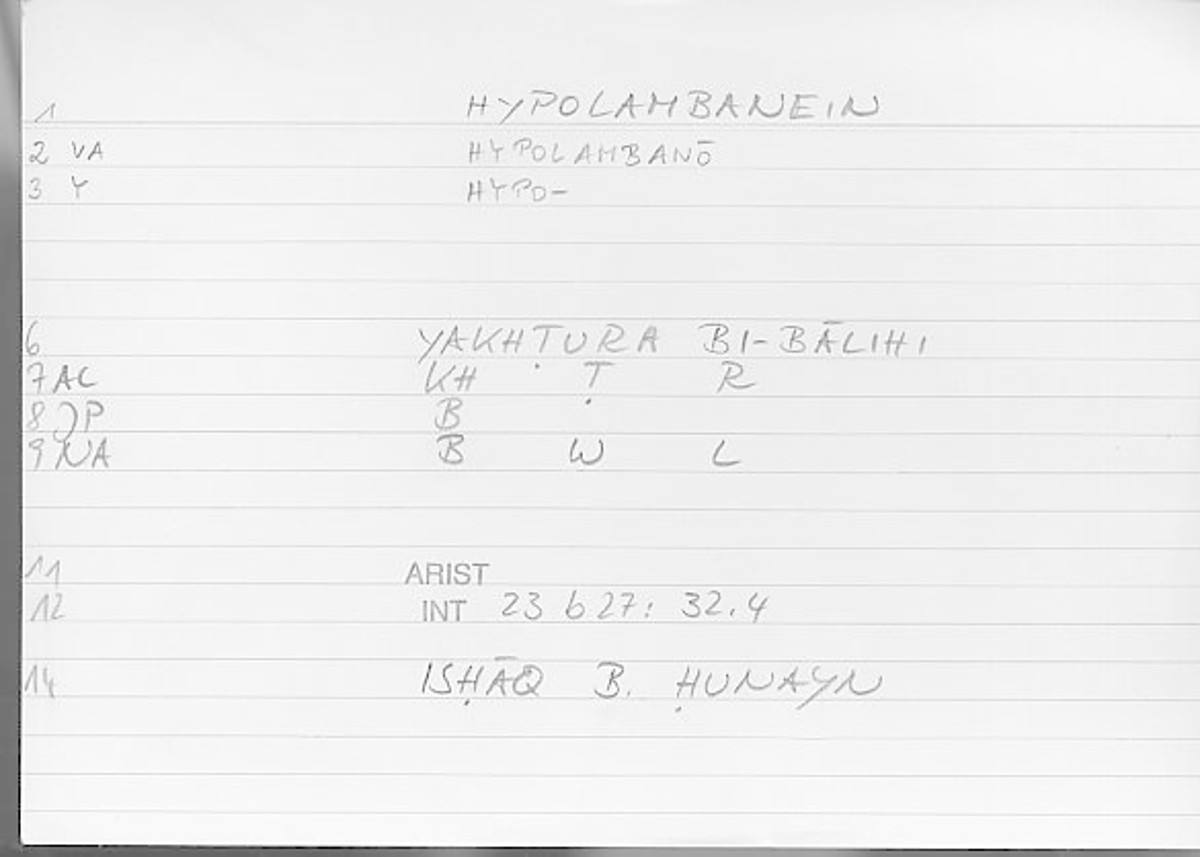 1 HYPOLAMBANEIN
2 VA HYPOLAMBANŌ
3 Y HYPO-
6 YAKHṬURA BI-BĀLIHI
7 AC KH Ṭ R
8 JP B
9 NA B W L
11 ARIST
12 INT 23 b 27: 32.4
14 ISḤĀQ B. ḤUNAYN